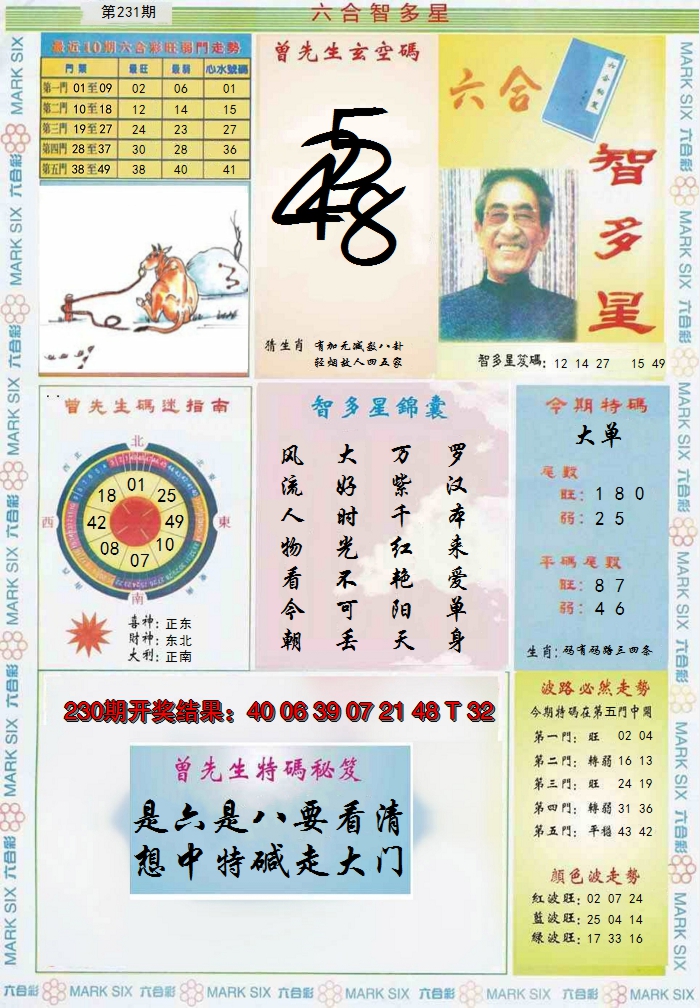 第231期
六合智多星
最近10期六合彩旺弱門走勢
門類 最旺 最弱 心水號碼
第一門 01至09 02 06 01
第二門 10至18 12 14 15
第三門 19至27 24 23 27
第四門 28至37 30 28 36
第五門 38至49 38 40 41
曾先生玄空碼
猜生肖 有加无减数八卦
轻烟故人四五家
六合
六合秘笈
智多星
智多星笈碼: 12 14 27 15 49
曾先生碼迷指南
北
西
東
南
01
18 25
42 49
08 10
07
喜神: 正东
财神: 东北
大利: 正南
智多星錦囊
罗汉本来爱单身
万紫千红艳阳天
大好时光不可丢
风流人物看今朝
今期特碼
大单
尾數
旺: 1 8 0
弱: 2 5
平碼尾數
旺: 8 7
弱: 4 6
生肖: 码有码路三四条
230期开奖结果: 40 06 39 07 21 48 T 32
曾先生特碼秘笈
是六是八要看清
想中特碱走大门
波路必然走勢
今期特碼在第五門中開
第一門: 旺 02 04
第二門: 轉弱 16 13
第三門: 旺 24 19
第四門: 轉弱 31 36
第五門: 平穩 43 42
顏色波走勢
紅波旺: 02 07 24
藍波旺: 25 04 14
綠波旺: 17 33 16
六合彩 MARK SIX 六合彩 MARK SIX 六合彩 MARK SIX 六合彩 MARK SIX 六合彩 MARK SIX